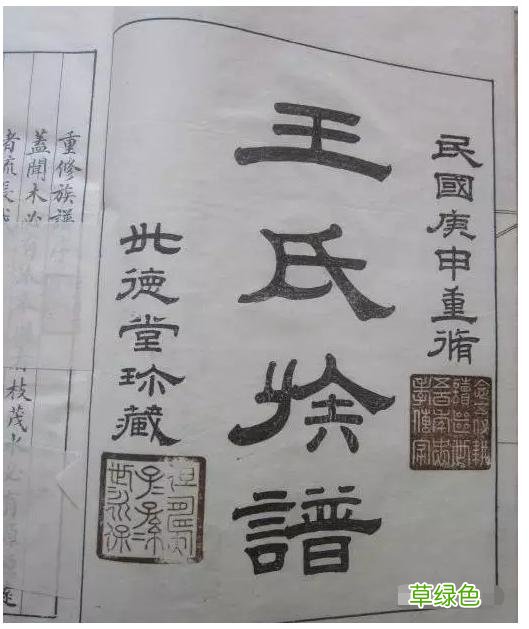 民國庚申重脩
王氏族譜
世德堂珍藏
重修族譜序
蓋聞木必有本 枝茂水必有
者流長
草绿色